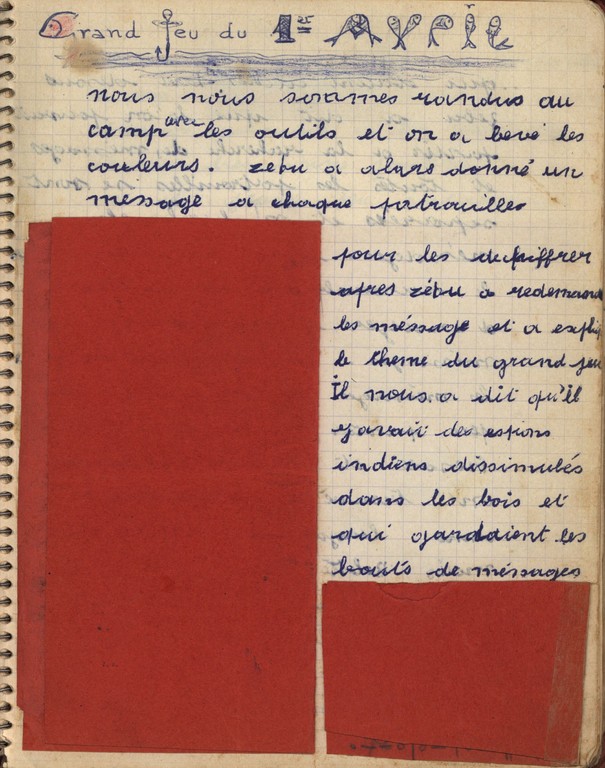 Grand Jeu du 1er AVRIL
nous nous sommes randus au
camp avec les outils et on a levé les
couleurs. zébu a alors donné un
message a chaque patrouilles
pour les dechiffrer
apres zébu a redemand
les méssage et a expliq
le theme du grand jeu
Il nous a dit qu'il
y avait des espions
indiens dissimulés
dans les bois et
qui gardaient les
bouts de méssages